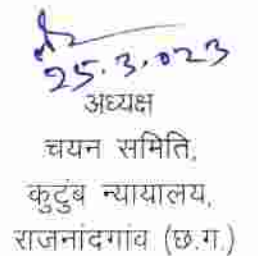 25.3.023
अध्यक्ष
चयन समिति,
कुटुंब न्यायालय,
राजनांदगांव (छ.ग.)